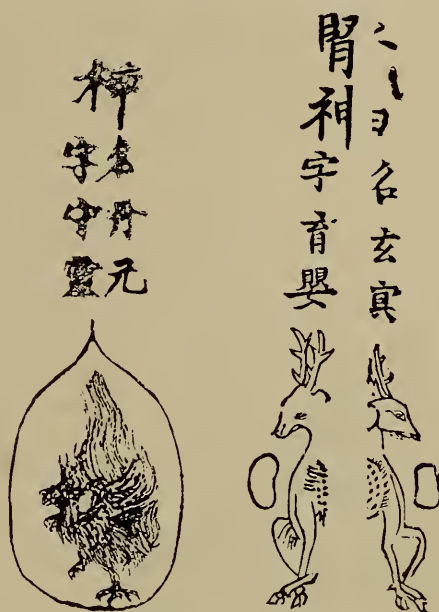 名玄冥
腎神字育嬰
神
名丹元
字守靈